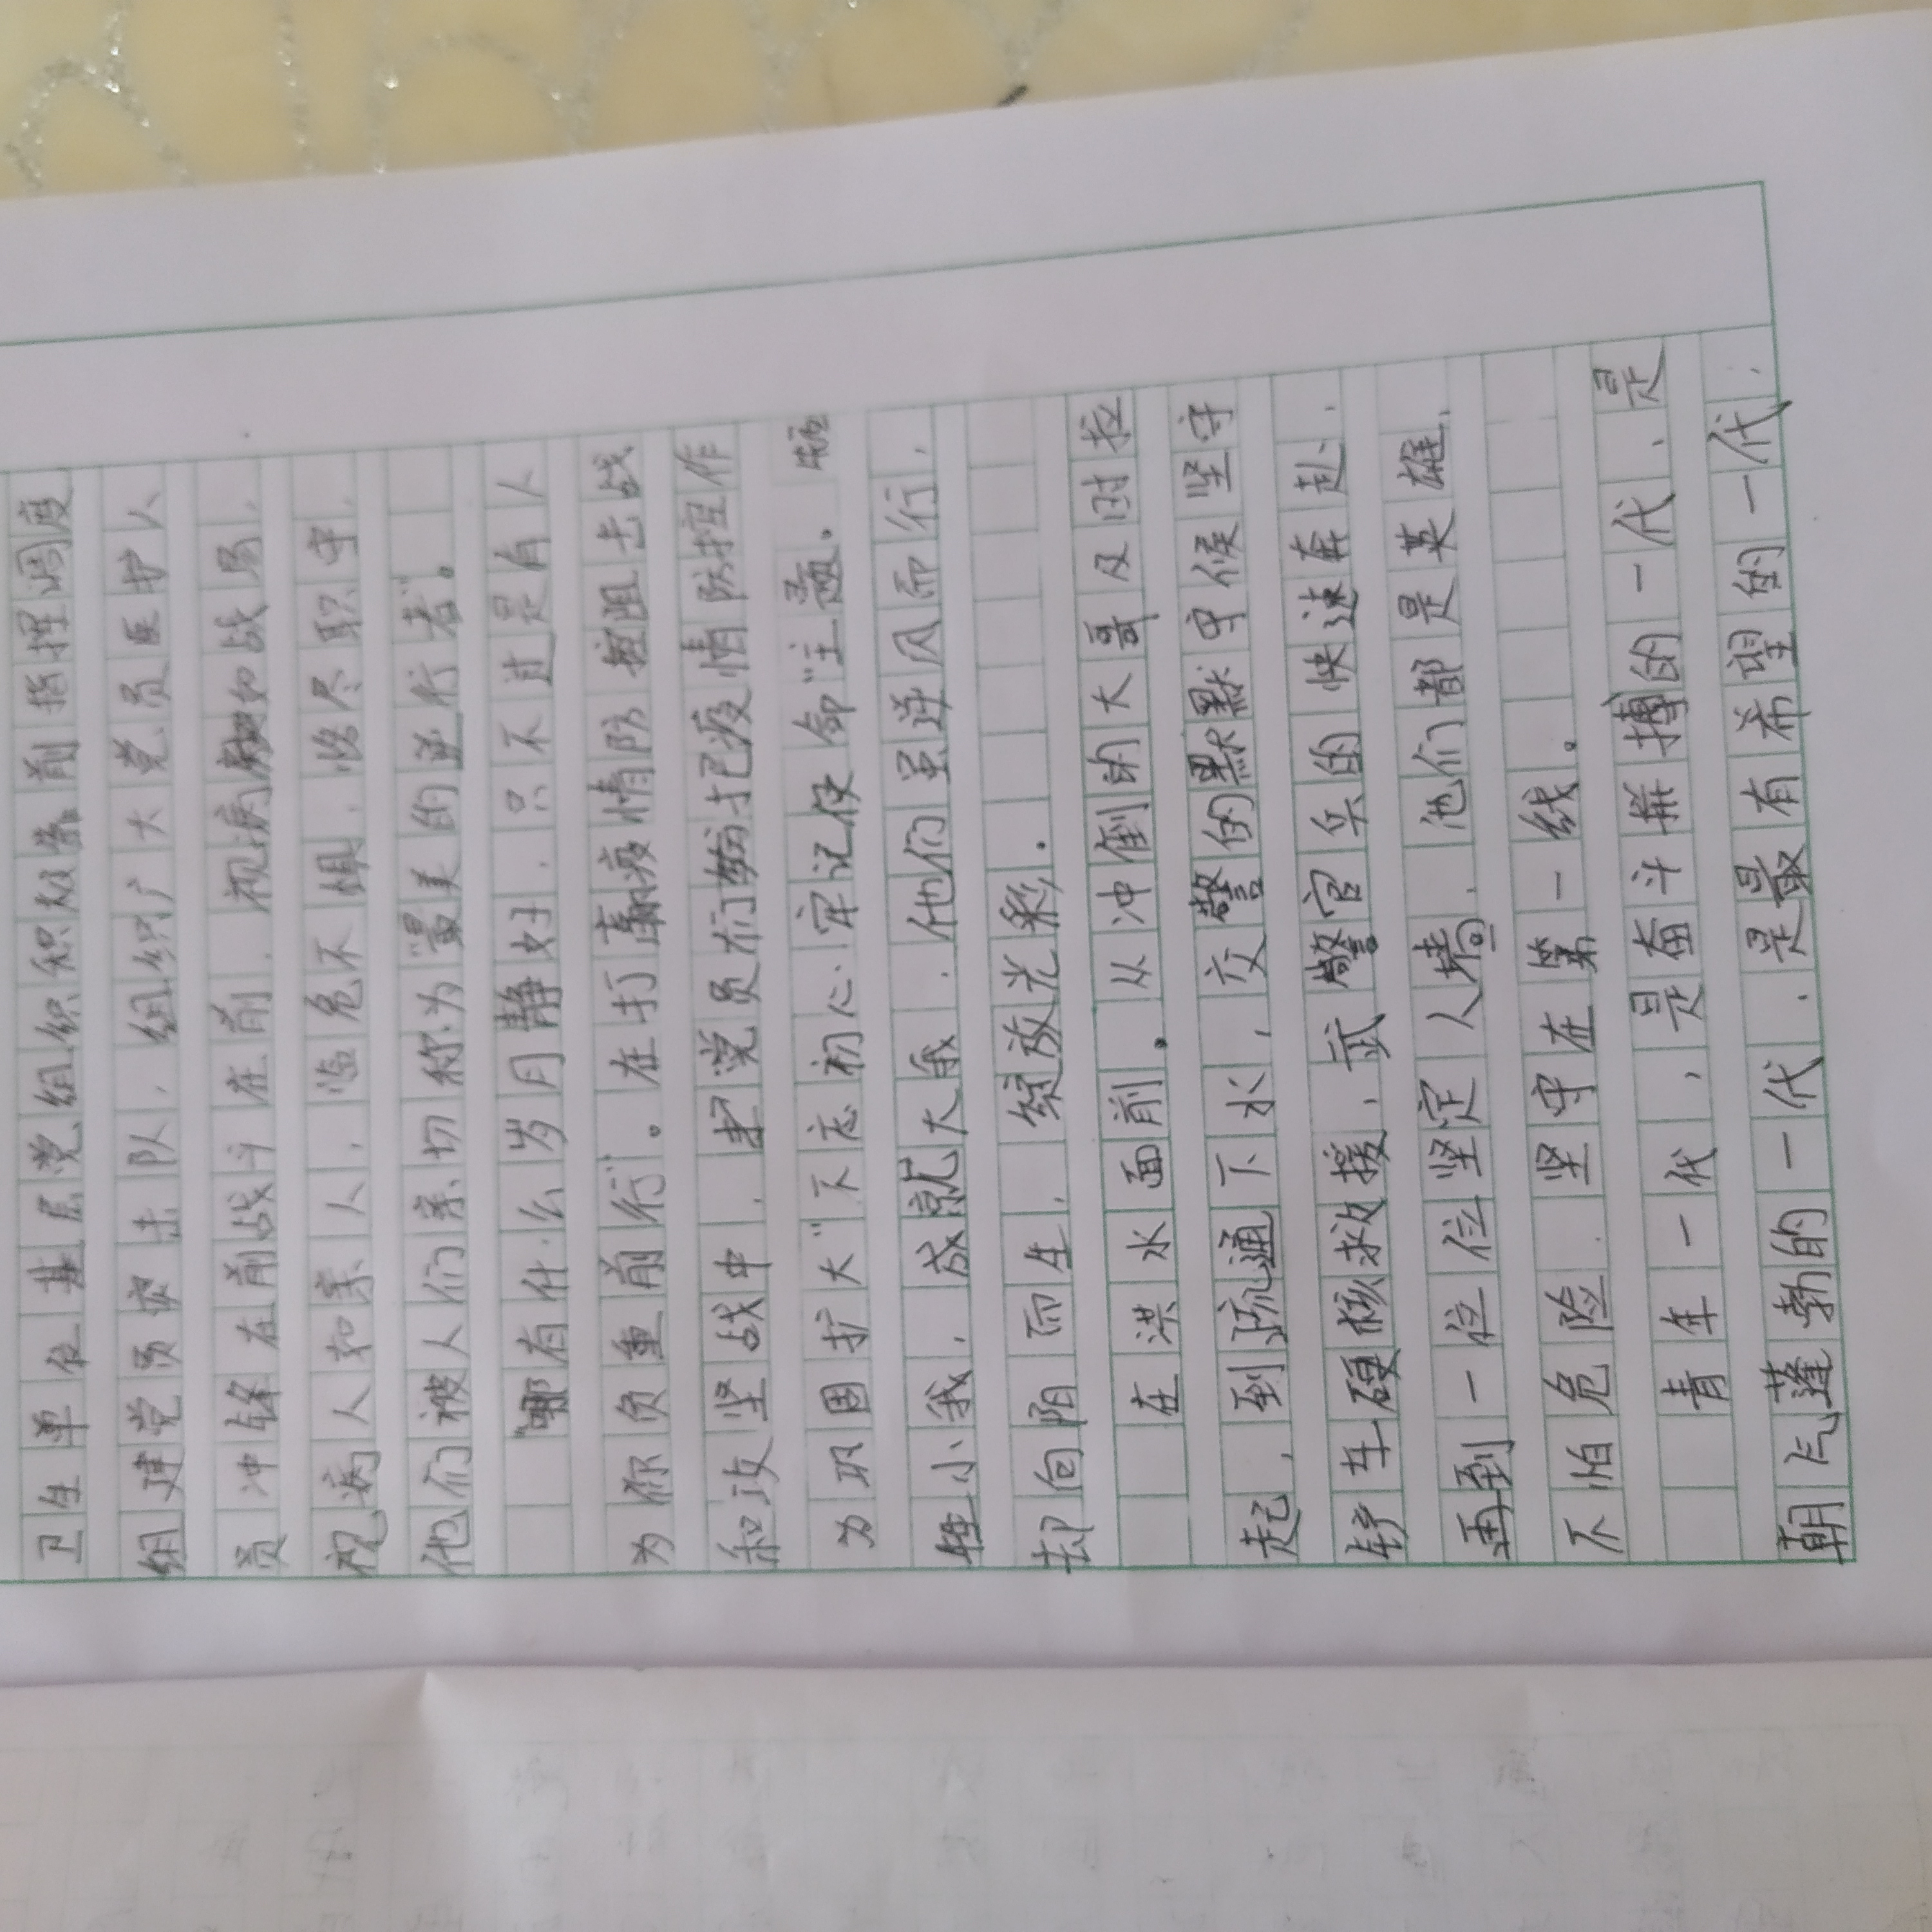 卫生单位基层党组织积极靠前指挥调度
组建党员突击队，组织广大党员医护人
员冲锋在前战斗在前，视病房如战场，
视病人如亲人，临危不惧，恪尽职守，
他们被人们亲切称为“最美的逆行者”。
“哪有什么岁月静好，只不过是有人
为你负重前行”。在打赢疫情防控阻击战
和攻坚战中，党员们纷纷把疫情防控作
为巩固扩大“不忘初心、牢记使命”主题。牺
牲小我，成就大我，他们虽逆风而行，
却向阳而生，绽放光彩，
在洪水面前。从冲倒的大哥及时拉
起，到疏通下水，交警的默默守候坚守
铲车硬核救援，武警官兵的快速奔赴，
再到一位位坚定人墙，他们都是英雄，
不怕危险，坚守在第一线。
青年一代，是奋斗拼搏的一代，是
朝气蓬勃的一代，是最有希望的一代，